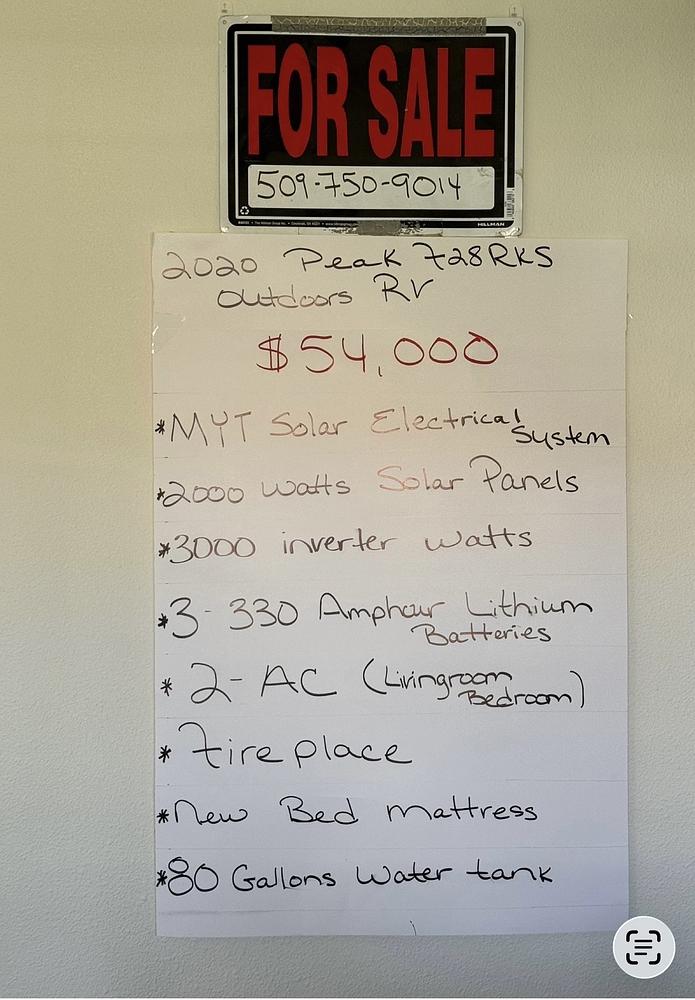 FOR SALE
509-750-9014
HILLMAN
2020 Peak 728RKS
Outdoors RV
$54,000
*MYT Solar Electrical
System
*2000 watts Solar Panels
*3000 inverter watts
*3- 330 Amphour Lithium
Batteries
* 2- AC (Livingroom
Bedroom)
* Fireplace
*New Bed mattress
*80 Gallons Water tank